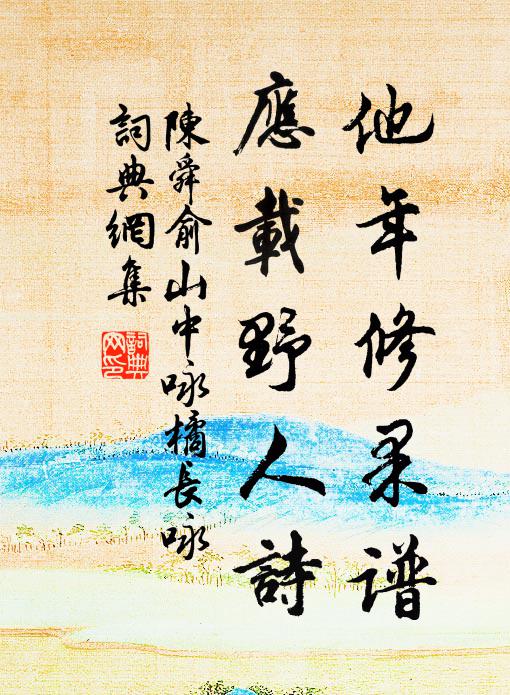 他年修果谱
應載野人詩
陳舜俞山中咏橘長咏
詞典網集
詞典网印